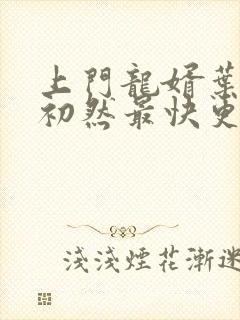 上門龍婿葉
初然最快更
淺淺煙花漸迷